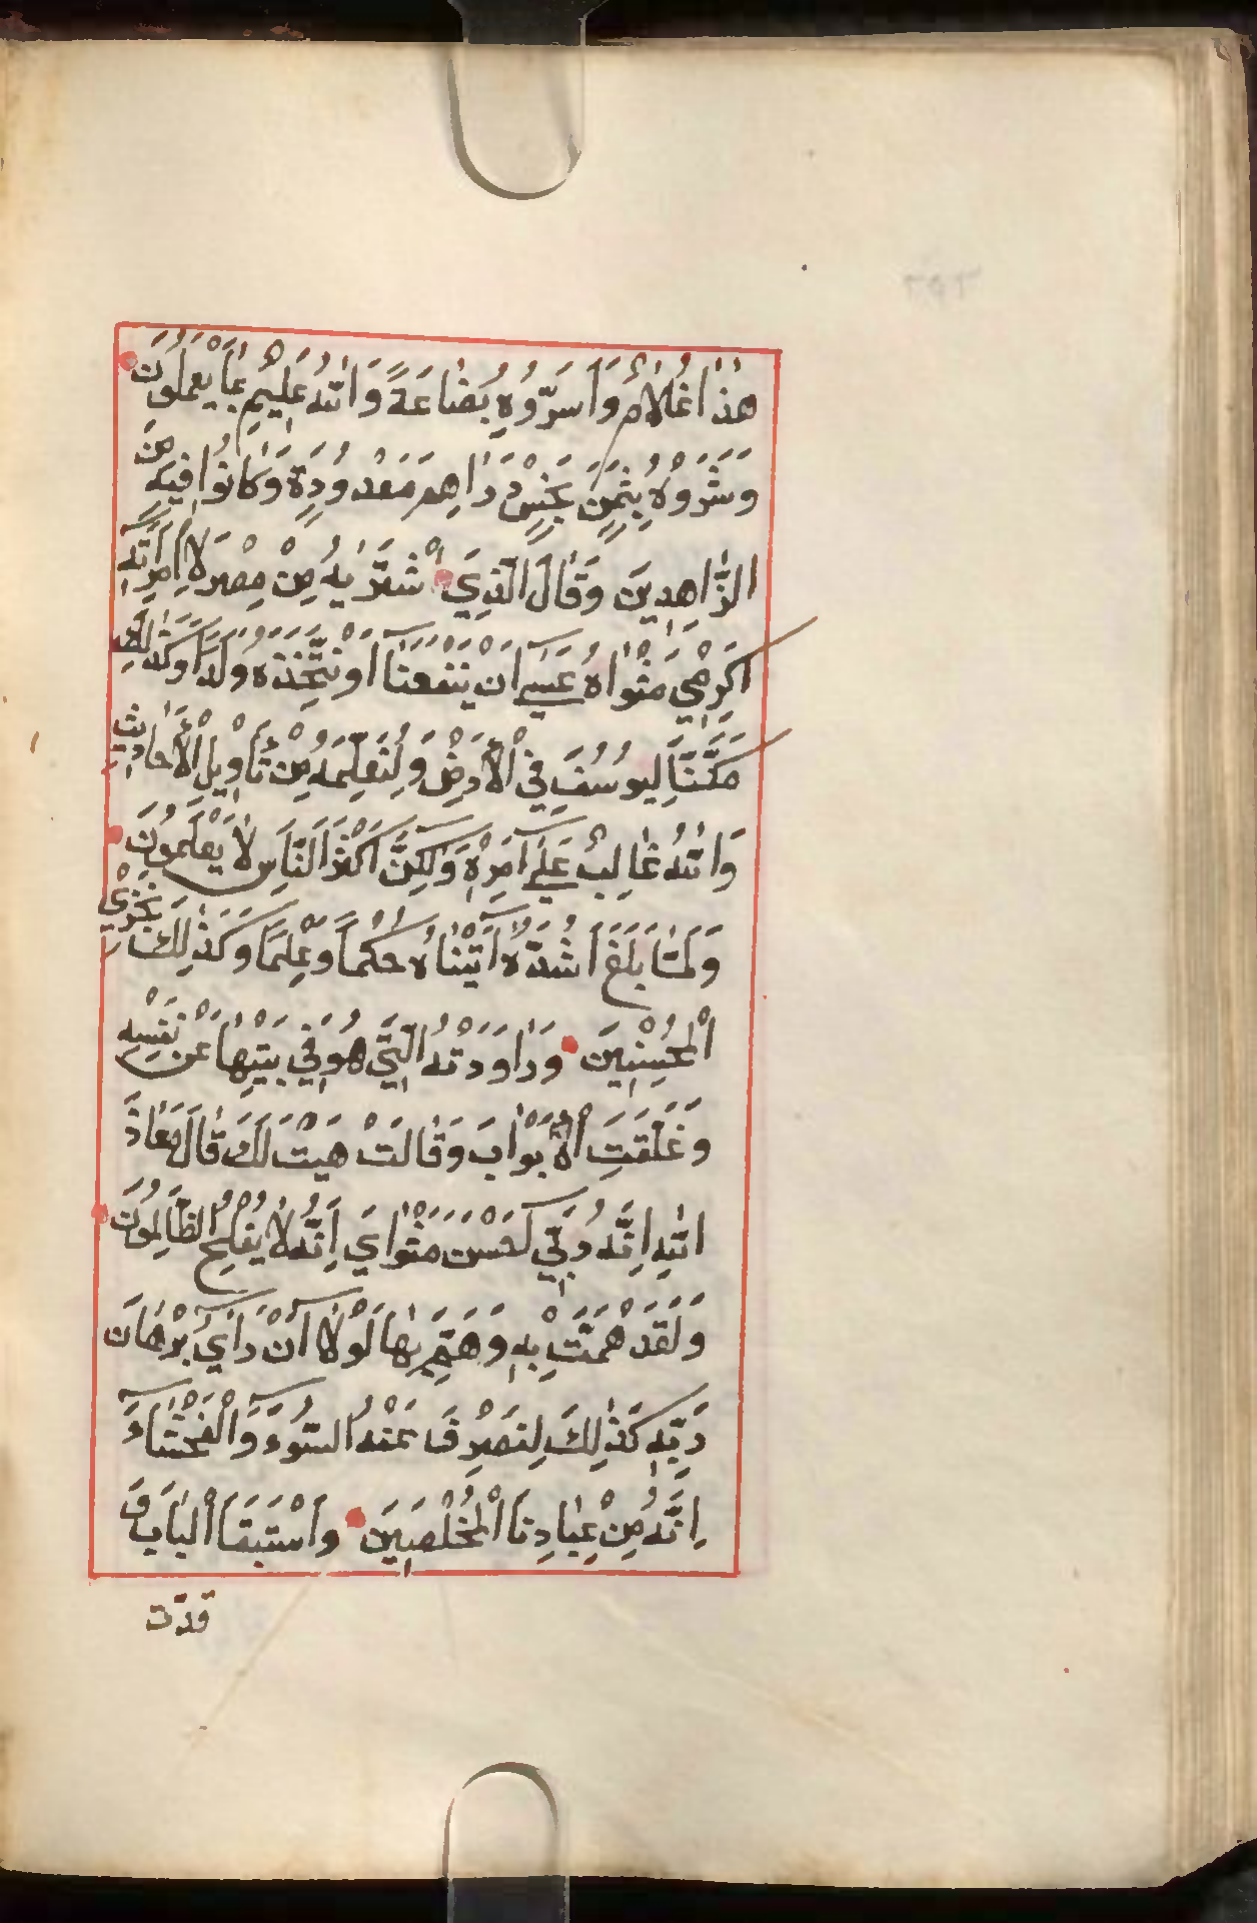 هٰذَا غُلَامٌ وَاَسَرُّوهُ بِضَاعَةً وَاللّٰهُ عَلِيمٌ بِمَا يَعْمَلُونَ
وَشَرَوْهُ بِثَمَنٍ بَخْسٍ دَرَاهِمَ مَعْدُودَةٍ وَكَانُوا فِيهِ مِنَ
الزَّاهِدِينَ وَقَالَ الَّذِي اشْتَرٰيهُ مِنْ مِصْرَ لِاِمْرَاَتِهٖٓ
اَكْرِمِي مَثْوٰاهُ عَسٰيٓ اَنْ يَنْفَعَنَآ اَوْ نَتَّخِذَهُ وَلَدًا وَكَذٰلِكَ
مَكَّنَّا لِيُوسُفَ فِي الْاَرْضِ وَلِنُعَلِّمَهُ مِنْ تَأْوِيلِ الْاَحَادِيثِ
وَاللّٰهُ غَالِبٌ عَلٰٓي اَمْرِهٖ وَلٰكِنَّ اَكْثَرَ النَّاسِ لَا يَعْلَمُونَ
وَلَمَّا بَلَغَ اَشُدَّهُٓ اٰتَيْنَاهُ حُكْمًا وَعِلْمًا وَكَذٰلِكَ نَجْزِي
الْمُحْسِنِينَ وَرَاوَدَتْهُ الَّتِي هُوَ فِي بَيْتِهَا عَنْ نَفْسِهٖ
وَغَلَّقَتِ الْاَبْوَابَ وَقَالَتْ هَيْتَ لَكَ قَالَ مَعَاذَ
اللّٰهِ اِنَّهُ رَبِّيٓ اَحْسَنَ مَثْوَايَ اِنَّهُ لَا يُفْلِحُ الظَّالِمُونَ
وَلَقَدْ هَمَّتْ بِهٖ وَهَمَّ بِهَا لَوْلَآ اَنْ رَاٰي بُرْهَانَ
رَبِّهٖ كَذٰلِكَ لِنَصْرِفَ عَنْهُ السُّوٓءَ وَالْفَحْشَآءَ
اِنَّهُ مِنْ عِبَادِنَا الْمُخْلَصِينَ وَاسْتَبَقَا الْبَابَ وَ
قدّت